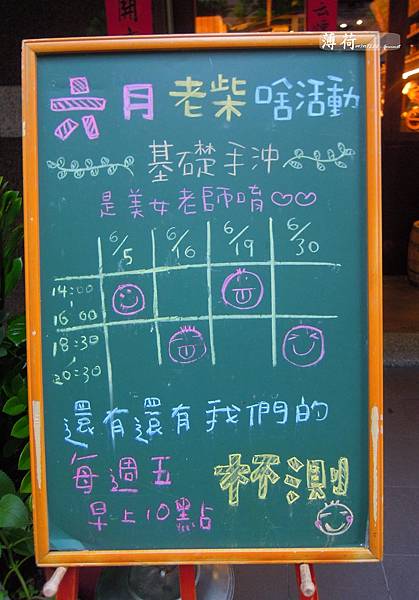 薄荷
六月老柴啥活動
基礎手沖
是美女老師唷♡♡
6/5 6/16 6/19 6/30
14:00
16:00
18:30
20:30
還有還有我們的
每週五 杯測
早上10點